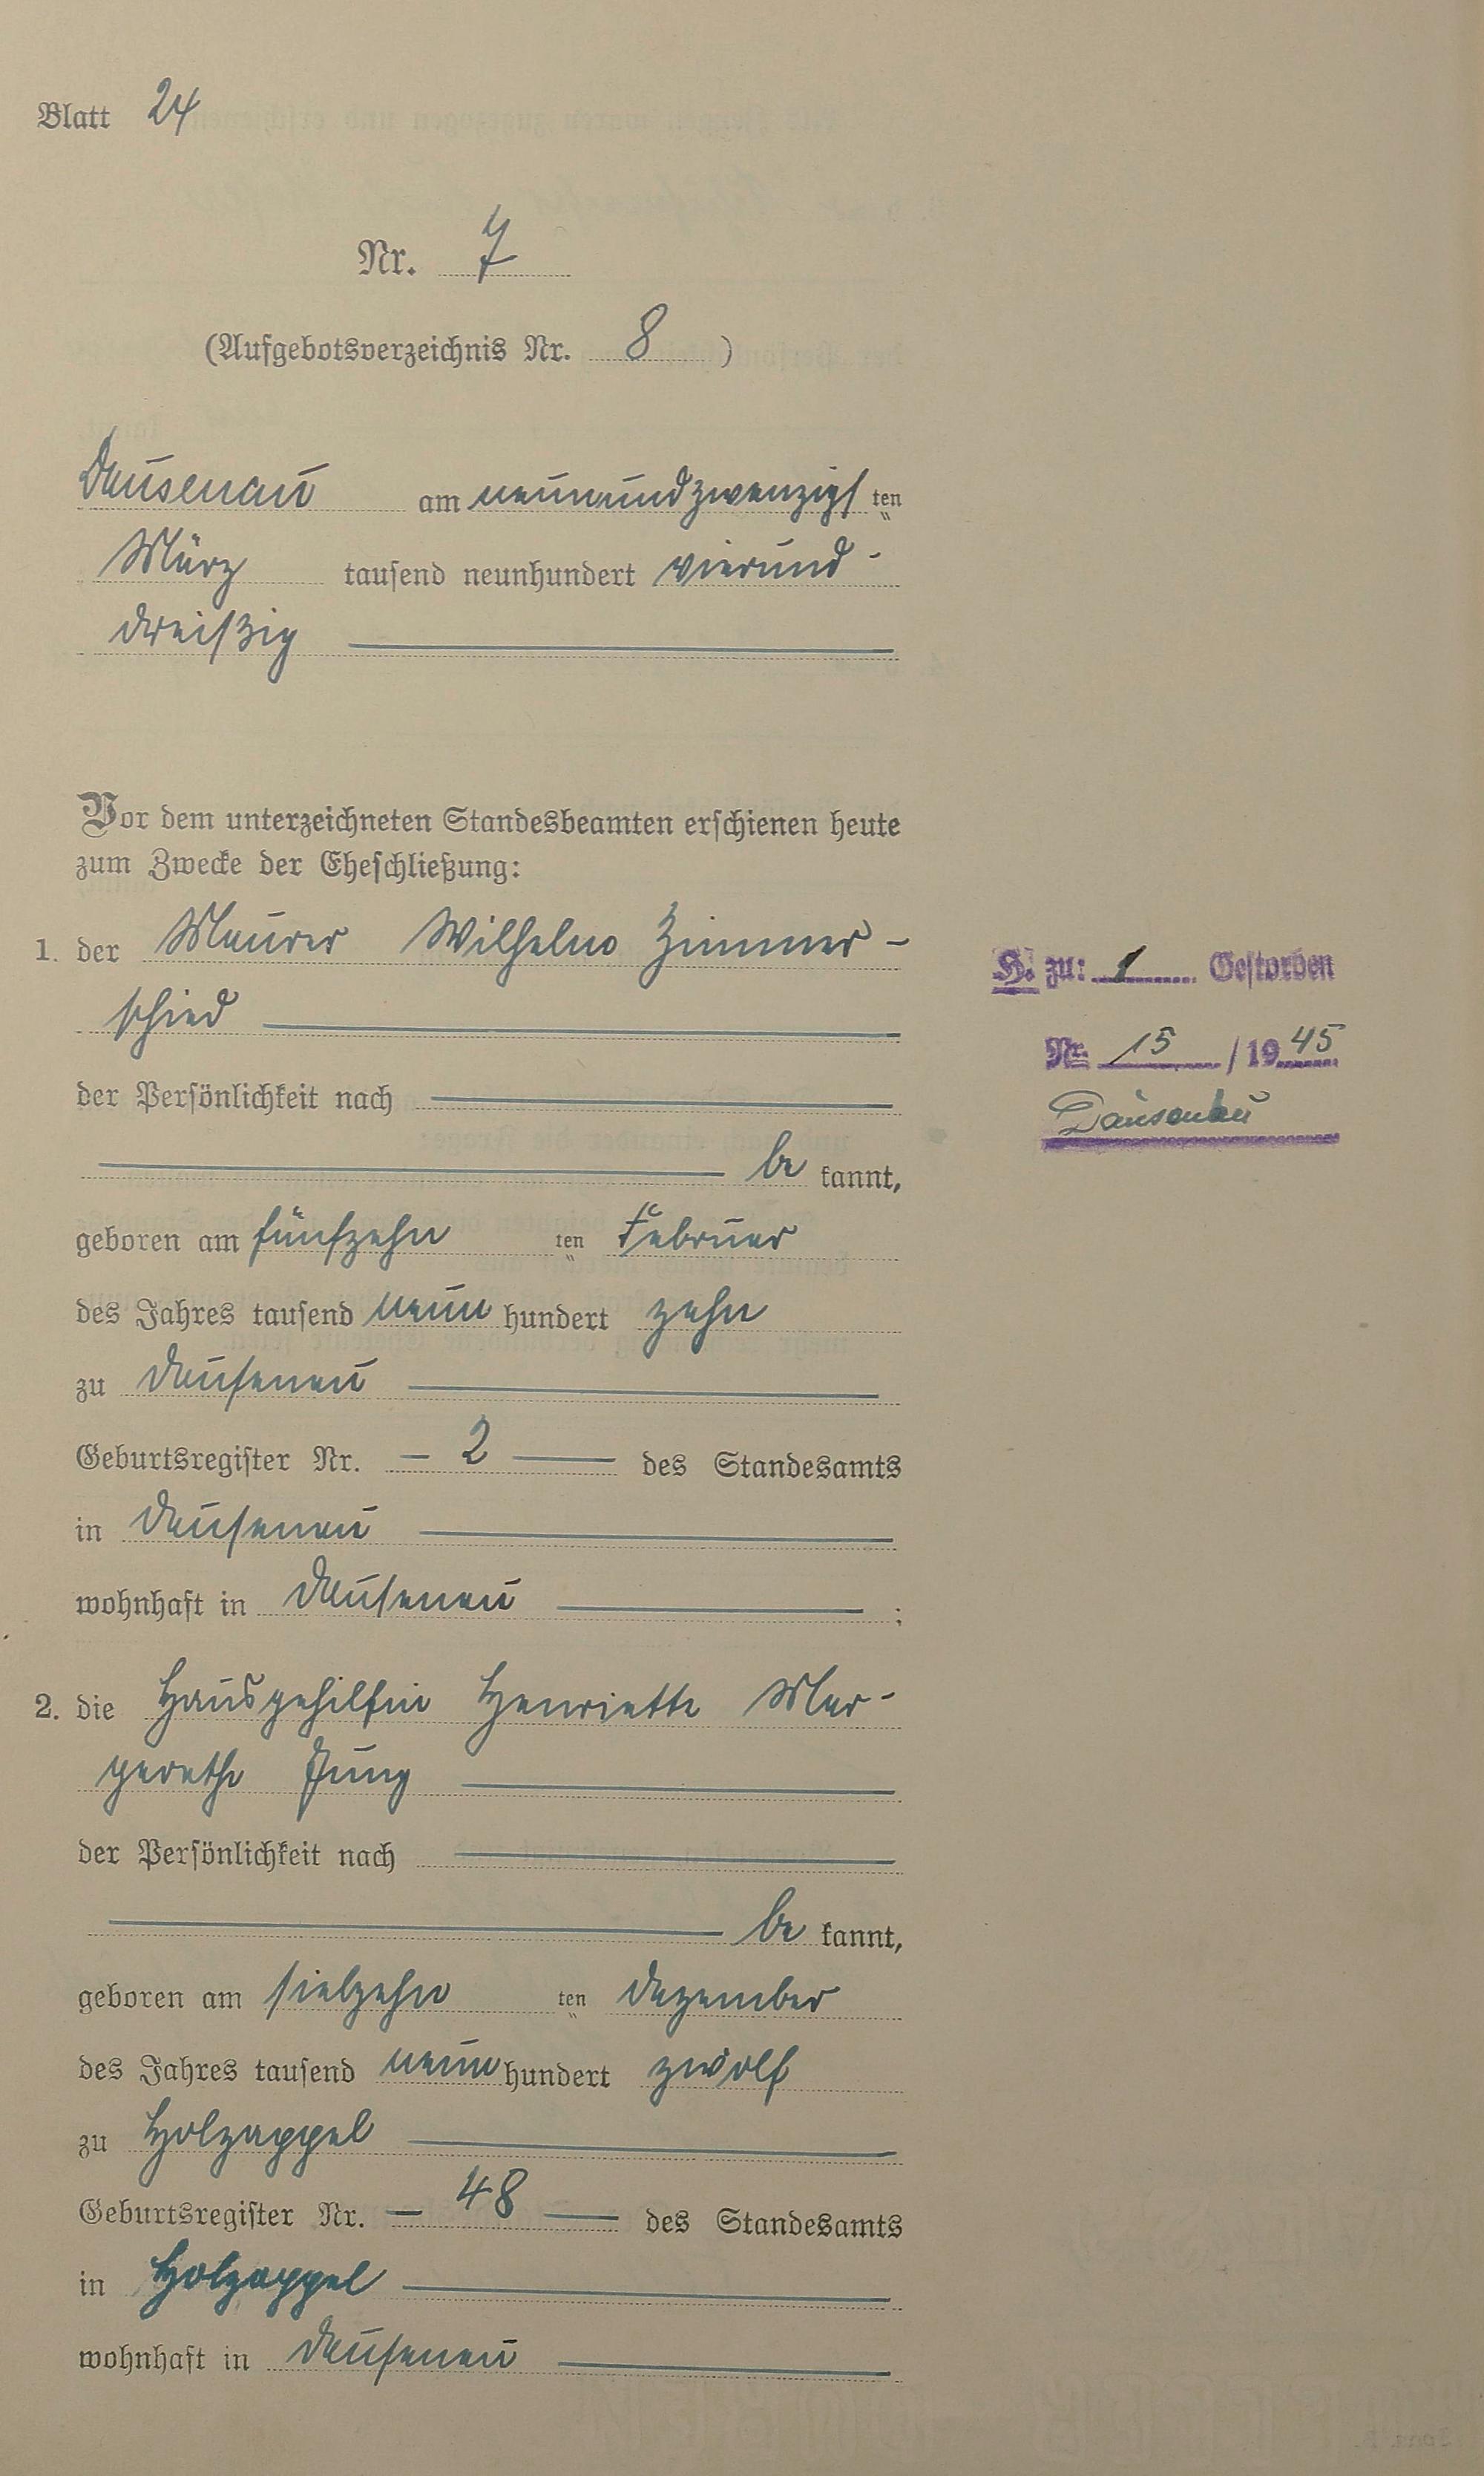 Blatt 24
Nr. 7
(Aufgebotsverzeichnis Nr. 8 )
Dausenau am neunundzwanzigsten
März tausend neunhundert vierund-
dreißig
Vor dem unterzeichneten Standesbeamten erschienen heute
zum Zwecke der Eheschließung:
1. der Maurer Wilhelm Zimmer-
schied
der Persönlichkeit nach
be kannt,
geboren am fünfzehn ten Februar
des Jahres tausend neun hundert zehn
zu Dausenau
Geburtsregister Nr. – 2 — des Standesamts
in Dausenau
wohnhaft in Dausenau ;
2. die Hausgehilfin Henriette Mar-
garethe Jung
der Persönlichkeit nach
be kannt,
geboren am siebzehn ten Dezember
des Jahres tausend neun hundert zwölf
zu Holzappel
Geburtsregister Nr. – 48 — des Standesamts
in Holzappel
wohnhaft in Dausenau
H. zu: 1 Gestorben
Nr. 15 / 1945
Dausenau